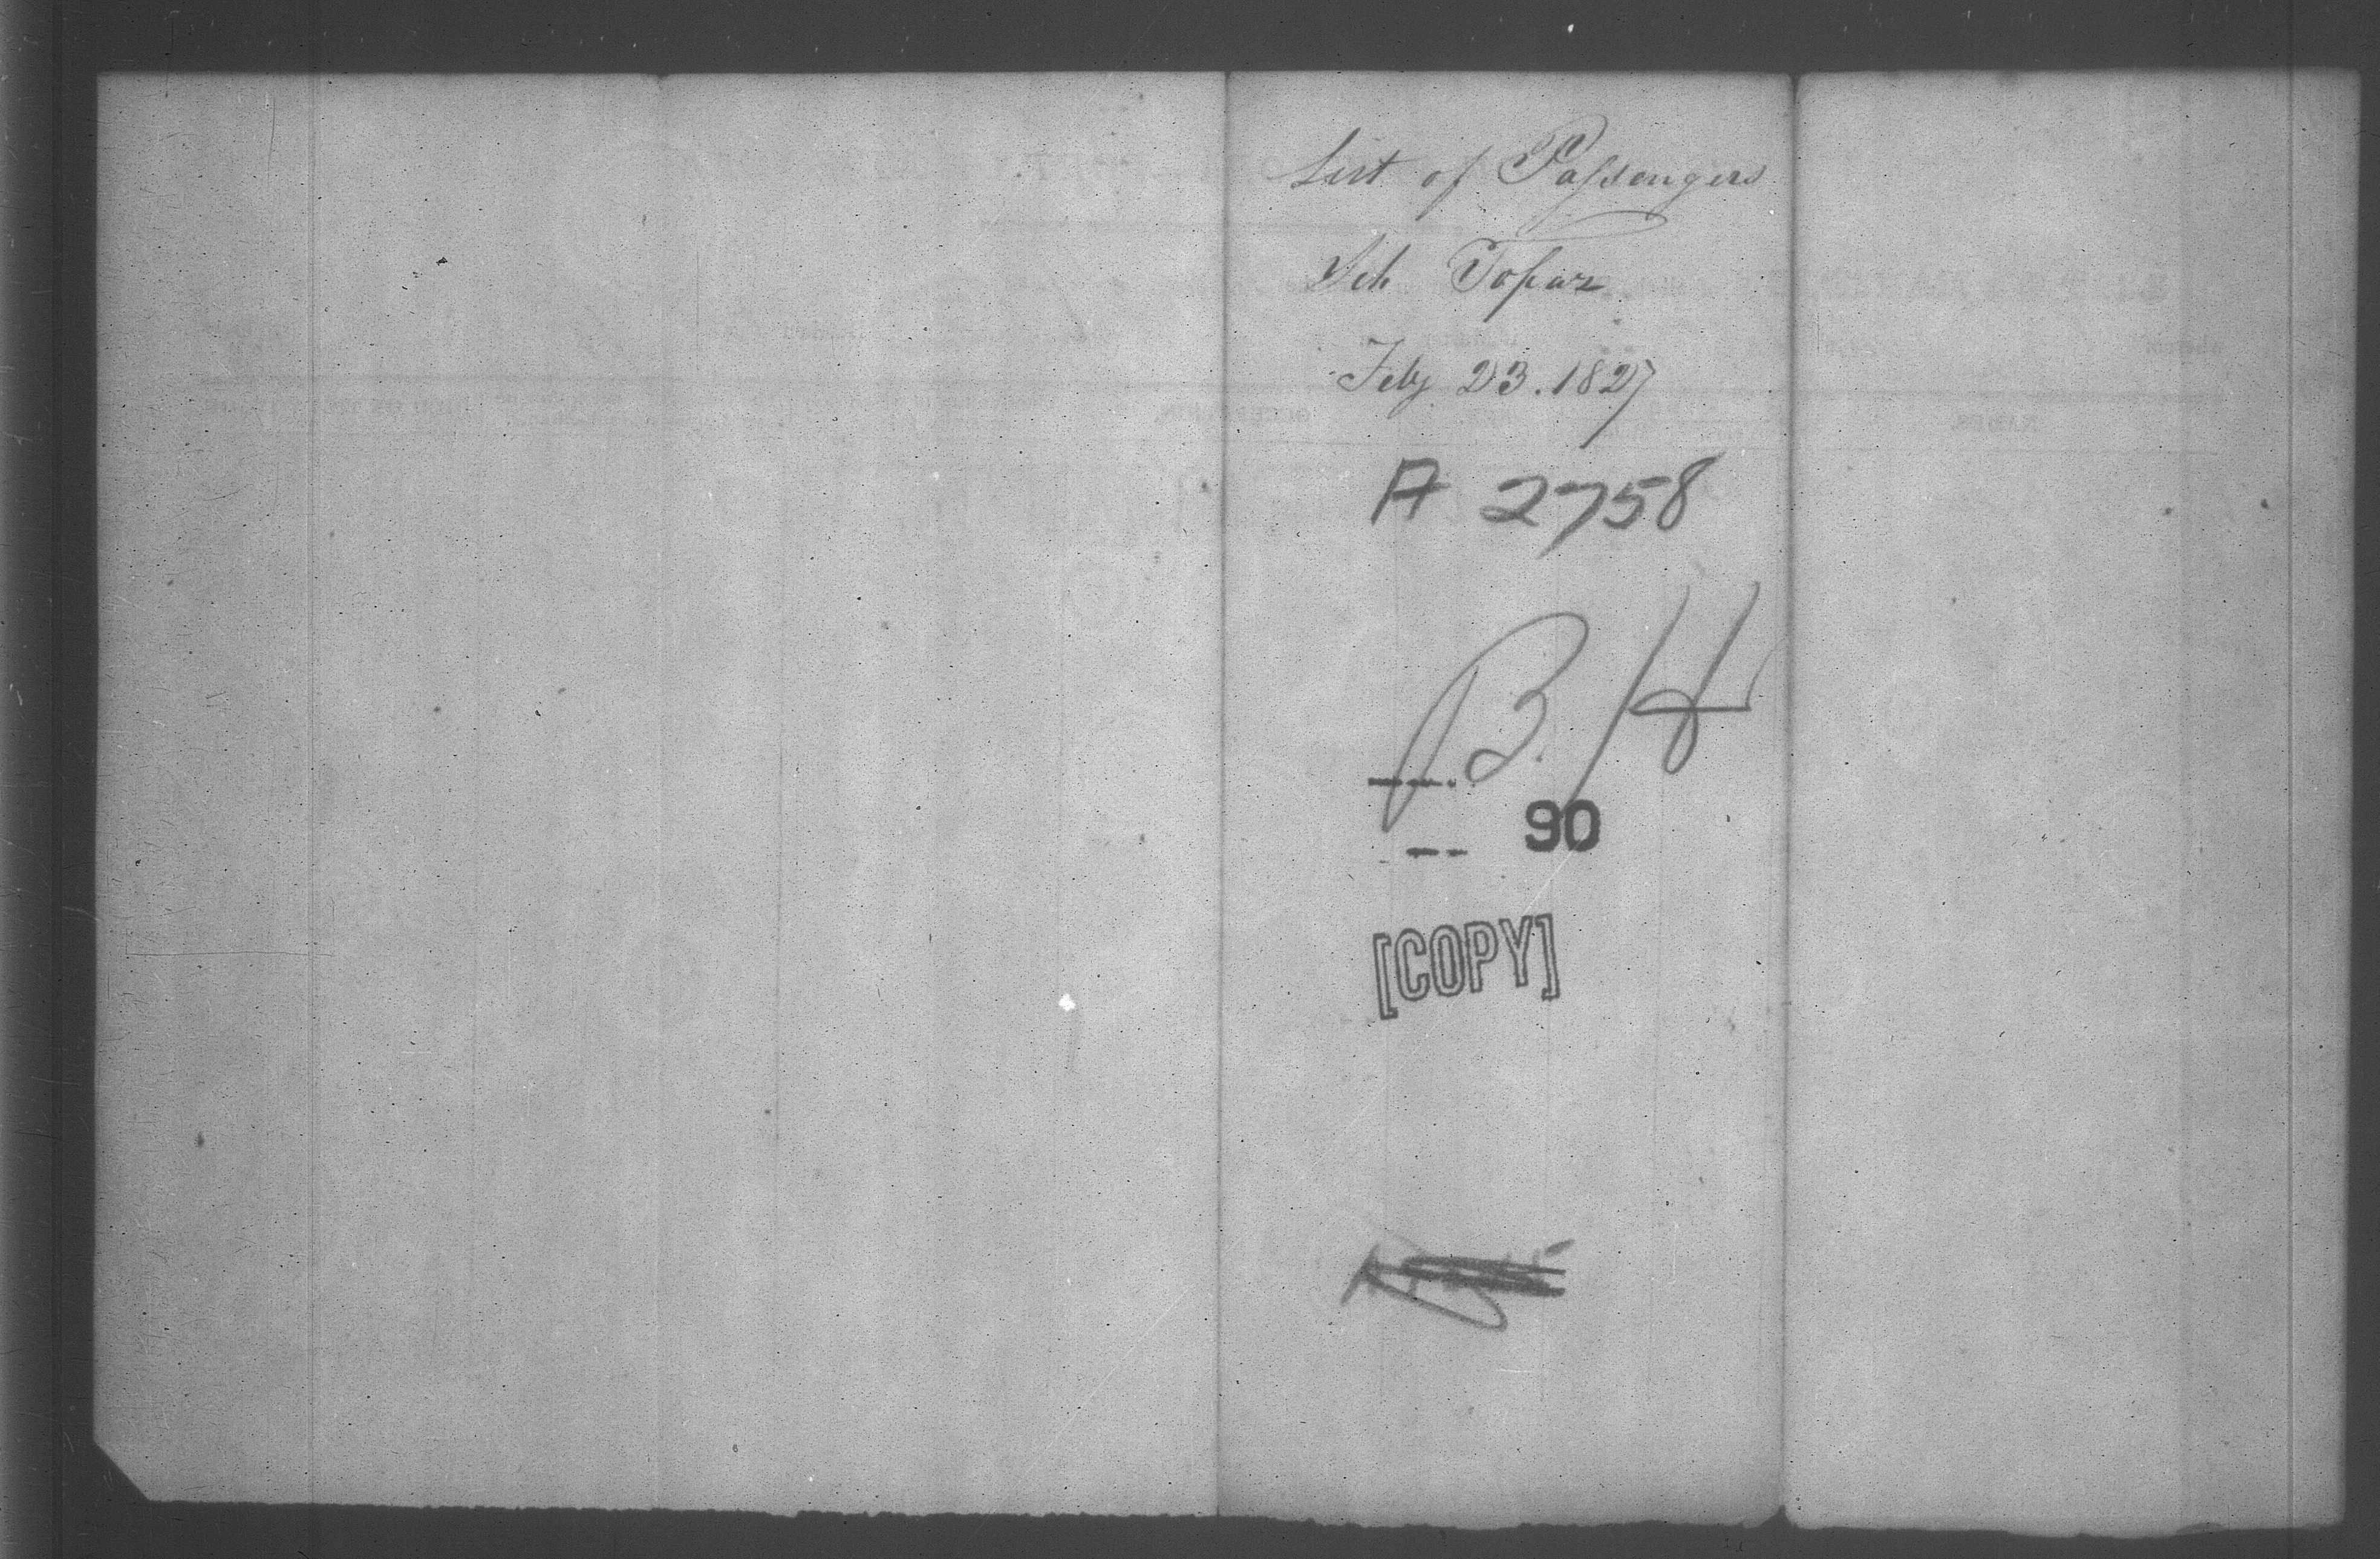 List of Passengers
Sch Topaz
Feby 23. 1827
A 2758
B. H
90
[COPY]